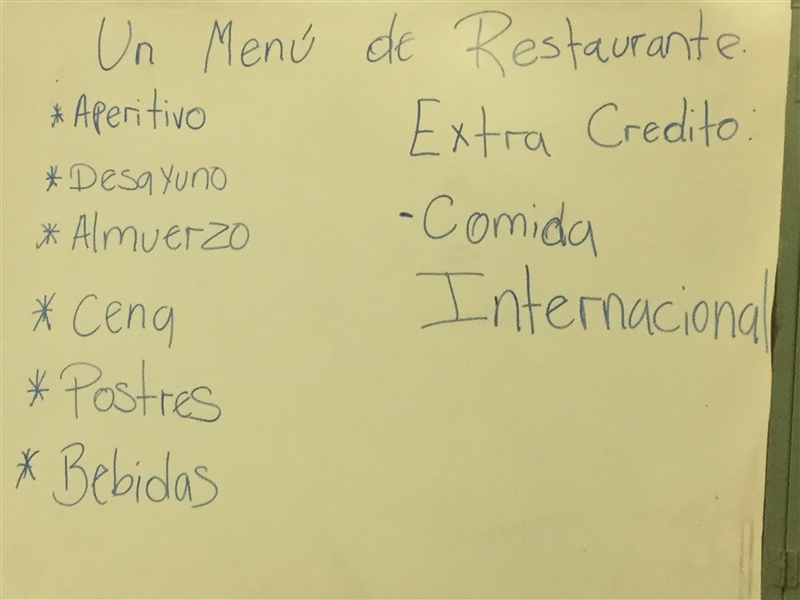 Un Menú de Restaurante.
* Aperitivo
* Desayuno
* Almuerzo
* Cena
* Postres
* Bebidas
Extra Credito:
- Comida
Internacional